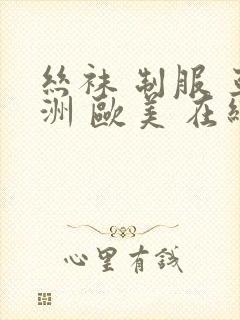 絲袜 制服
洲 歐美 在
心里有錢